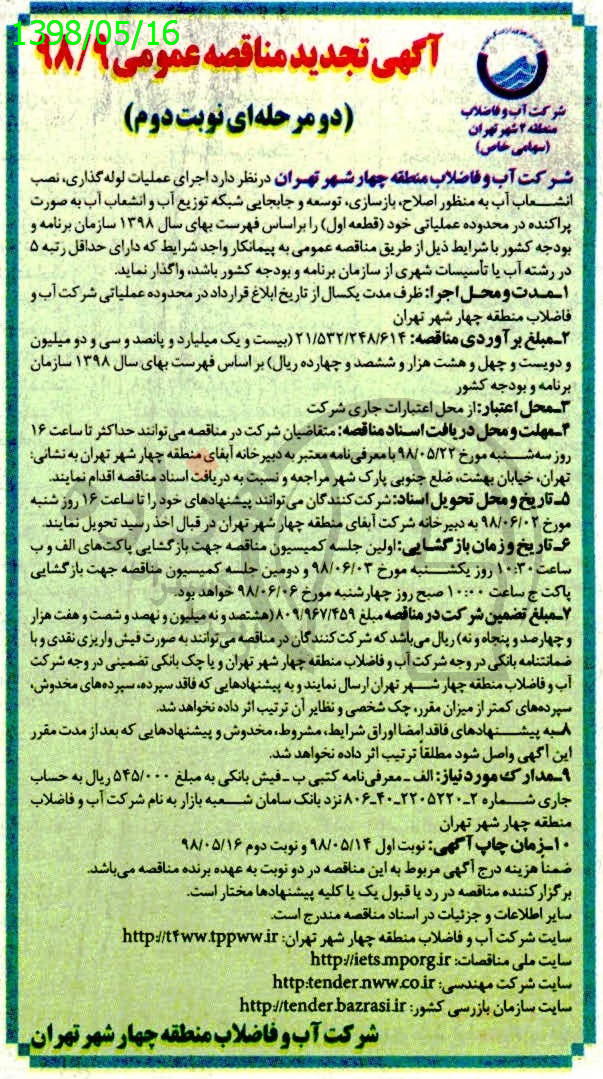 1398/05/16
آگهی تجدید مناقصه عمومی ۹۸/۹
(دو مرحله‌ای نوبت دوم)
شرکت آب و فاضلاب
منطقه ۴ شهر تهران
(سهامی خاص)
شرکت آب و فاضلاب منطقه چهار شهر تهران درنظر دارد اجرای عملیات لوله‌گذاری، نصب
انشعاب آب به منظور اصلاح، بازسازی، توسعه و جابجایی شبکه توزیع آب و انشعاب آب به صورت
پراکنده در محدوده عملیاتی خود (قطعه اول) را براساس فهرست بهای سال ۱۳۹۸ سازمان برنامه و
بودجه کشور با شرایط ذیل از طریق مناقصه عمومی به پیمانکار واجد شرایط که دارای حداقل رتبه ۵
در رشته آب یا تأسیسات شهری از سازمان برنامه و بودجه کشور باشد، واگذار نماید.
۱ـ مدت و محل اجرا: ظرف مدت یکسال از تاریخ ابلاغ قرارداد در محدوده عملیاتی شرکت آب و
فاضلاب منطقه چهار شهر تهران
۲ـ مبلغ برآوردی مناقصه: ۲۱/۵۳۲/۲۴۸/۶۱۴ (بیست و یک میلیارد و پانصد و سی و دو میلیون
و دویست و چهل و هشت هزار و ششصد و چهارده ریال) بر اساس فهرست بهای سال ۱۳۹۸ سازمان
برنامه و بودجه کشور
۳ـ محل اعتبار: از محل اعتبارات جاری شرکت
۴ـ مهلت و محل دریافت اسناد مناقصه: متقاضیان شرکت در مناقصه می‌توانند حداکثر تا ساعت ۱۶
روز سه‌شنبه مورخ ۹۸/۰۵/۲۲ با معرفی‌نامه معتبر به دبیرخانه آبفای منطقه چهار شهر تهران به نشانی:
تهران، خیابان بهشت، ضلع جنوبی پارک شهر مراجعه و نسبت به دریافت اسناد مناقصه اقدام نمایند.
۵ـ تاریخ و محل تحویل اسناد: شرکت‌کنندگان می‌توانند پیشنهادهای خود را تا ساعت ۱۶ روز شنبه
مورخ ۹۸/۰۶/۰۲ به دبیرخانه شرکت آبفای منطقه چهار شهر تهران در قبال اخذ رسید تحویل نمایند.
۶ـ تاریخ و زمان بازگشایی: اولین جلسه کمیسیون مناقصه جهت بازگشایی پاکت‌های الف و ب
ساعت ۱۰:۳۰ روز یکشنبه مورخ ۹۸/۰۶/۰۳ و دومین جلسه کمیسیون مناقصه جهت بازگشایی
پاکت ج ساعت ۱۰:۰۰ صبح روز چهارشنبه مورخ ۹۸/۰۶/۰۶ خواهد بود.
۷ـ مبلغ تضمین شرکت در مناقصه مبلغ ۸۰۹/۹۶۷/۴۵۹ (هشتصد و نه میلیون و نهصد و شصت و هفت هزار
و چهارصد و پنجاه و نه) ریال می‌باشد که شرکت‌کنندگان در مناقصه می‌توانند به صورت فیش واریزی نقدی و یا
ضمانتنامه بانکی در وجه شرکت آب و فاضلاب منطقه چهار شهر تهران و یا چک بانکی تضمینی در وجه شرکت
آب و فاضلاب منطقه چهار شهر تهران ارسال نمایند و به پیشنهادهایی که فاقد سپرده، سپرده‌های مخدوش،
سپرده‌های کمتر از میزان مقرر، چک شخصی و نظایر آن ترتیب اثر داده نخواهد شد.
۸ـ به پیشنهادهای فاقد امضا اوراق شرایط، مشروط، مخدوش و پیشنهادهایی که بعد از مدت مقرر
این آگهی واصل شود مطلقاً ترتیب اثر داده نخواهد شد.
۹ـ مدارک مورد نیاز: الف ـ معرفی‌نامه کتبی ب ـ فیش بانکی به مبلغ ۵۴۵/۰۰۰ ریال به حساب
جاری شماره ۲ـ۲۲۰۵۲۲۰ـ۴۰ـ۸۰۶ نزد بانک سامان شعبه بازار به نام شرکت آب و فاضلاب
منطقه چهار شهر تهران
۱۰ـ زمان چاپ آگهی: نوبت اول ۹۸/۰۵/۱۴ و نوبت دوم ۹۸/۰۵/۱۶
ضمناً هزینه درج آگهی مربوط به این مناقصه در دو نوبت به عهده برنده مناقصه می‌باشد.
برگزارکننده مناقصه در رد یا قبول یک یا کلیه پیشنهادها مختار است.
سایر اطلاعات و جزئیات در اسناد مناقصه مندرج است.
سایت شرکت آب و فاضلاب منطقه چهار شهر تهران: http://t۴ww.tppww.ir
سایت ملی مناقصات: http://iets.mporg.ir
سایت شرکت مهندسی: http:tender.nww.co.ir
سایت سازمان بازرسی کشور: http://tender.bazrasi.ir
شرکت آب و فاضلاب منطقه چهار شهر تهران